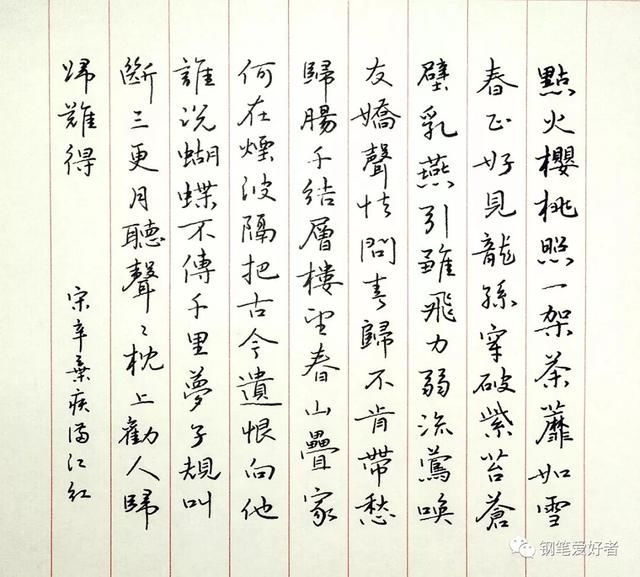 點火櫻桃照一架荼蘼如雪
春正好見龍孫穿破紫苔蒼
壁乳燕引雛飛力弱流鶯喚
友嬌聲怯問春歸不肯帶愁
歸腸千結層樓望春山疊家
何在煙波隔把古今遺恨向他
誰説蝴蝶不傳千里夢子規叫
斷三更月聽聲〻枕上勸人歸
歸難得
宋辛棄疾滿江紅
钢笔爱好者